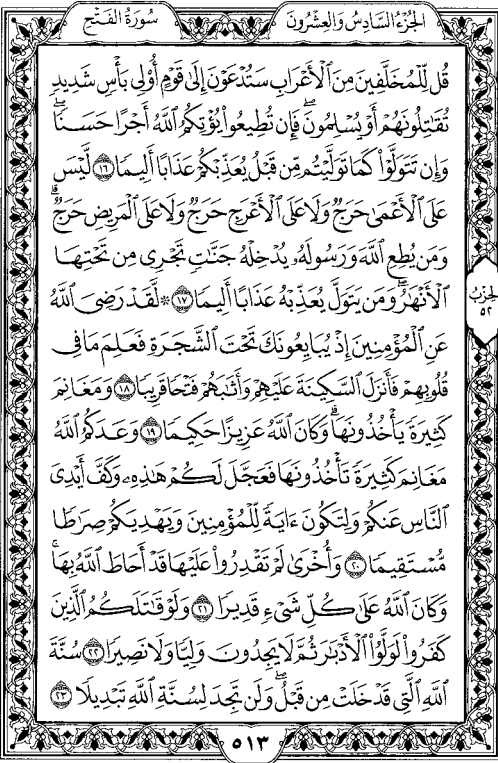 سُورَةُ الفَتْحِ
الجُزْءُ السَّادِسُ وَالعِشْرُونَ
قُل لِّلْمُخَلَّفِينَ مِنَ ٱلْأَعْرَابِ سَتُدْعَوْنَ إِلَىٰ قَوْمٍ أُو۟لِى بَأْسٍ شَدِيدٍ
تُقَـٰتِلُونَهُمْ أَوْ يُسْلِمُونَ ۖ فَإِن تُطِيعُوا۟ يُؤْتِكُمُ ٱللَّهُ أَجْرًا حَسَنًا ۖ
وَإِن تَتَوَلَّوْا۟ كَمَا تَوَلَّيْتُم مِّن قَبْلُ يُعَذِّبْكُمْ عَذَابًا أَلِيمًا ١٦ لَّيْسَ
عَلَى ٱلْأَعْمَىٰ حَرَجٌ وَلَا عَلَى ٱلْأَعْرَجِ حَرَجٌ وَلَا عَلَى ٱلْمَرِيضِ حَرَجٌ ۗ
وَمَن يُطِعِ ٱللَّهَ وَرَسُولَهُۥ يُدْخِلْهُ جَنَّـٰتٍ تَجْرِى مِن تَحْتِهَا
ٱلْأَنْهَـٰرُ ۖ وَمَن يَتَوَلَّ يُعَذِّبْهُ عَذَابًا أَلِيمًا ١٧ ۞ لَّقَدْ رَضِىَ ٱللَّهُ
عَنِ ٱلْمُؤْمِنِينَ إِذْ يُبَايِعُونَكَ تَحْتَ ٱلشَّجَرَةِ فَعَلِمَ مَا فِى
قُلُوبِهِمْ فَأَنزَلَ ٱلسَّكِينَةَ عَلَيْهِمْ وَأَثَـٰبَهُمْ فَتْحًا قَرِيبًا ١٨ وَمَغَانِمَ
كَثِيرَةً يَأْخُذُونَهَا ۗ وَكَانَ ٱللَّهُ عَزِيزًا حَكِيمًا ١٩ وَعَدَكُمُ ٱللَّهُ
مَغَانِمَ كَثِيرَةً تَأْخُذُونَهَا فَعَجَّلَ لَكُمْ هَـٰذِهِۦ وَكَفَّ أَيْدِىَ
ٱلنَّاسِ عَنكُمْ وَلِتَكُونَ ءَايَةً لِّلْمُؤْمِنِينَ وَيَهْدِيَكُمْ صِرَٰطًا
مُّسْتَقِيمًا ٢٠ وَأُخْرَىٰ لَمْ تَقْدِرُوا۟ عَلَيْهَا قَدْ أَحَاطَ ٱللَّهُ بِهَا ۚ
وَكَانَ ٱللَّهُ عَلَىٰ كُلِّ شَىْءٍ قَدِيرًا ٢١ وَلَوْ قَـٰتَلَكُمُ ٱلَّذِينَ
كَفَرُوا۟ لَوَلَّوُا۟ ٱلْأَدْبَـٰرَ ثُمَّ لَا يَجِدُونَ وَلِيًّا وَلَا نَصِيرًا ٢٢ سُنَّةَ
ٱللَّهِ ٱلَّتِى قَدْ خَلَتْ مِن قَبْلُ ۖ وَلَن تَجِدَ لِسُنَّةِ ٱللَّهِ تَبْدِيلًا ٢٣
الحِزْبُ
٥٢
٥١٣